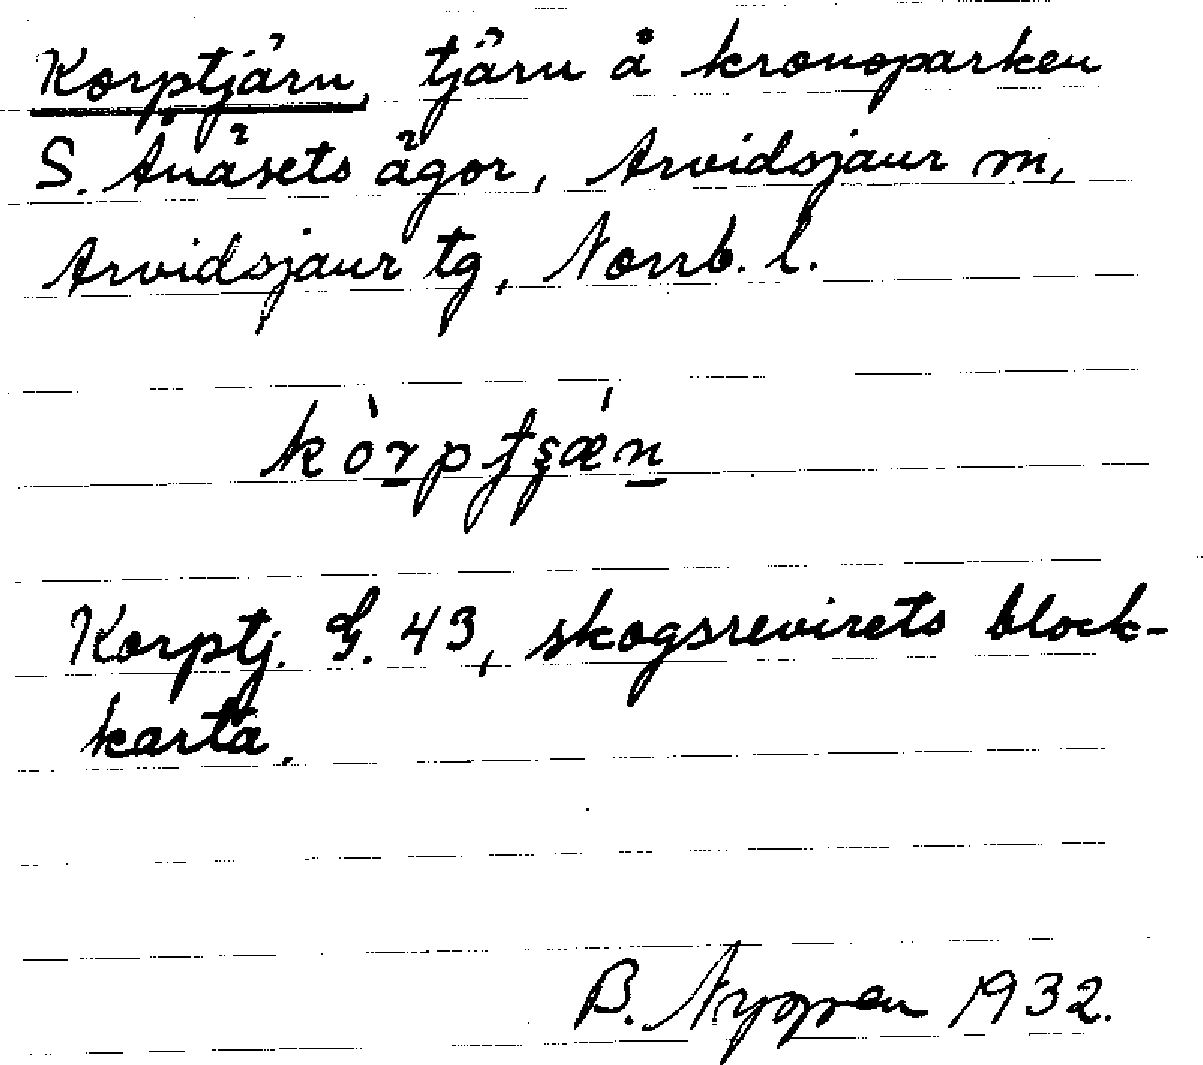 Korptjärn, tjärn å kronoparken
S. Ånäsets ägor, Arvidsjaur m,
Arvidsjaur tg, Norrb. l.
Korptj. G. 43, skogsrevirets block-
karta.
B. 1932.